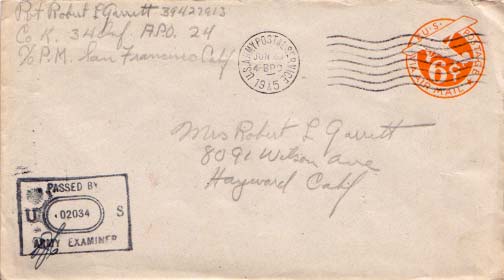 Pvt Robert L Garrett 39427913
Co K. 34 Inf. A.P.O. 24
c/o P.M. San Francisco Calif
U.S. ARMY POSTAL SERVICE
JUN
1945
U.S. POSTAGE
6¢
VIA AIR MAIL
Mrs Robert L Garrett
8091 Wilson Ave
Hayward Calif
PASSED BY
U 02034 S
ARMY EXAMINER